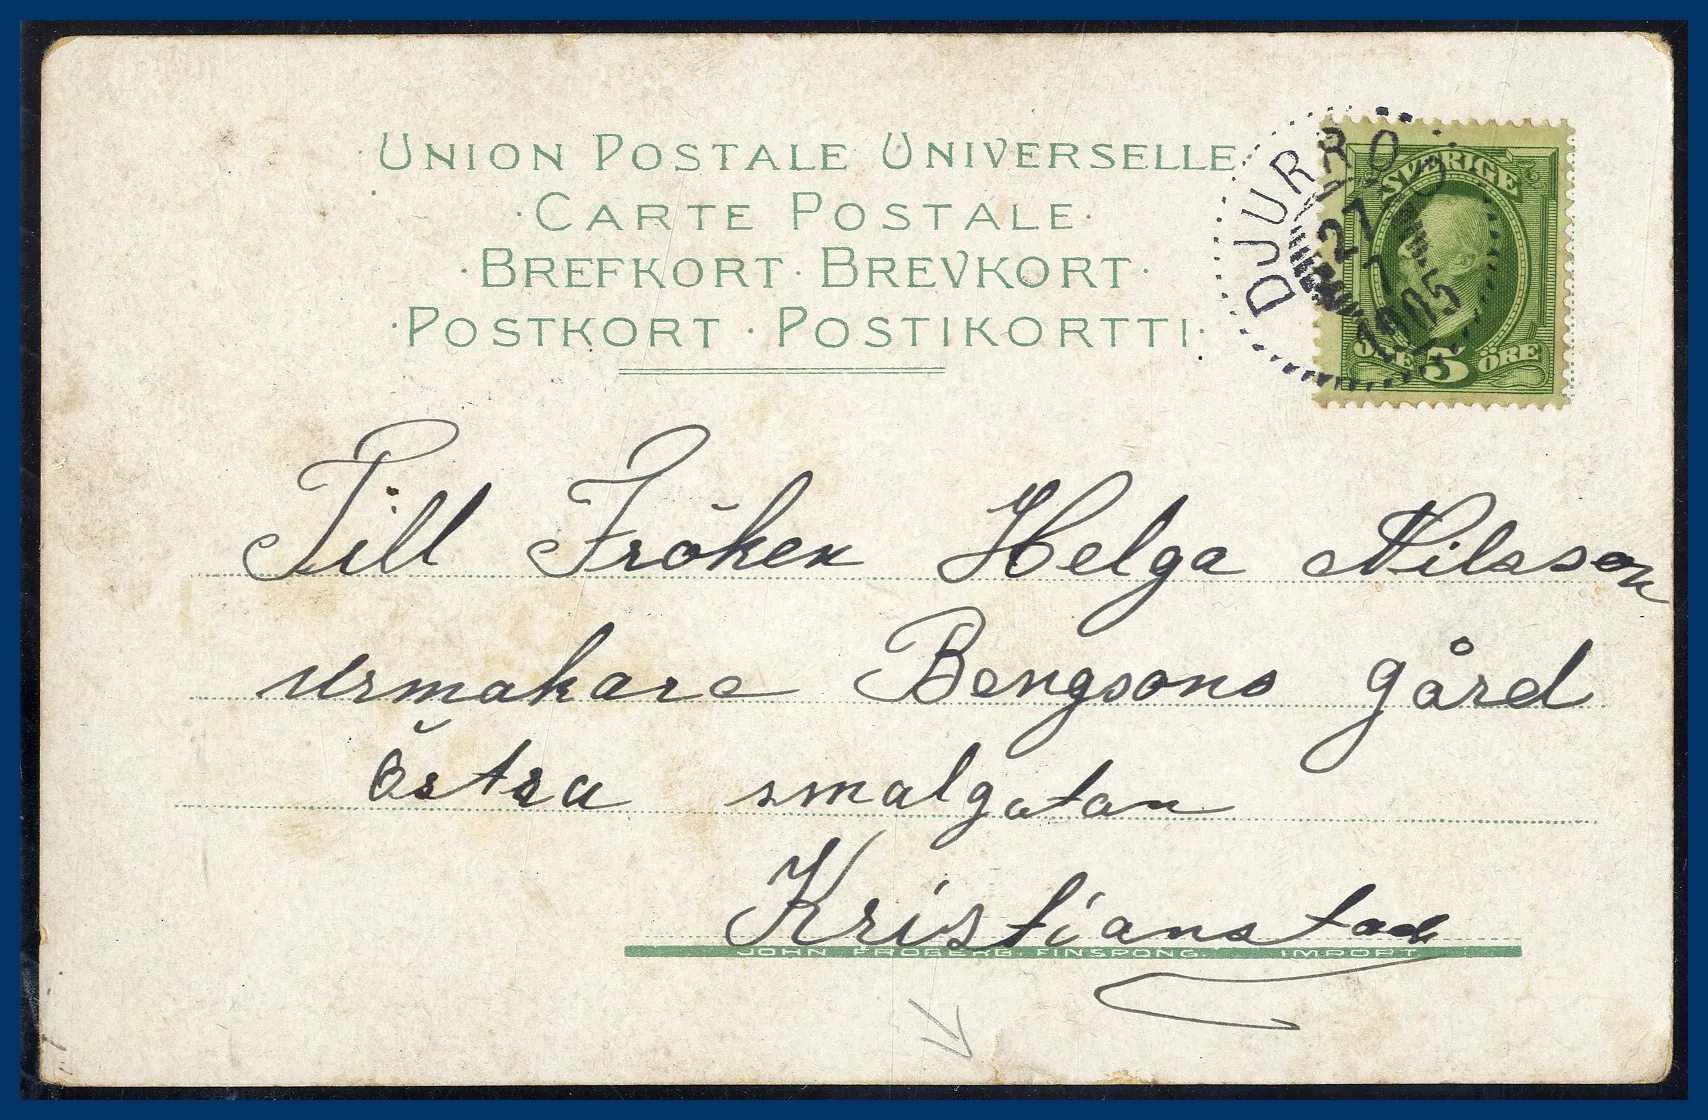 UNION POSTALE UNIVERSELLE
·CARTE POSTALE·
·BREFKORT·BREVKORT·
·POSTKORT·POSTIKORTTI·
DJURRÖD
27
7
1905
SVERIGE
ÖRE 5 ÖRE
Till Fröken Helga Nilsson
urmakare Bengsons gård
östra smalgatan
Kristianstad
JOHN FRÖBERG. FINSPONG. IMPORT.